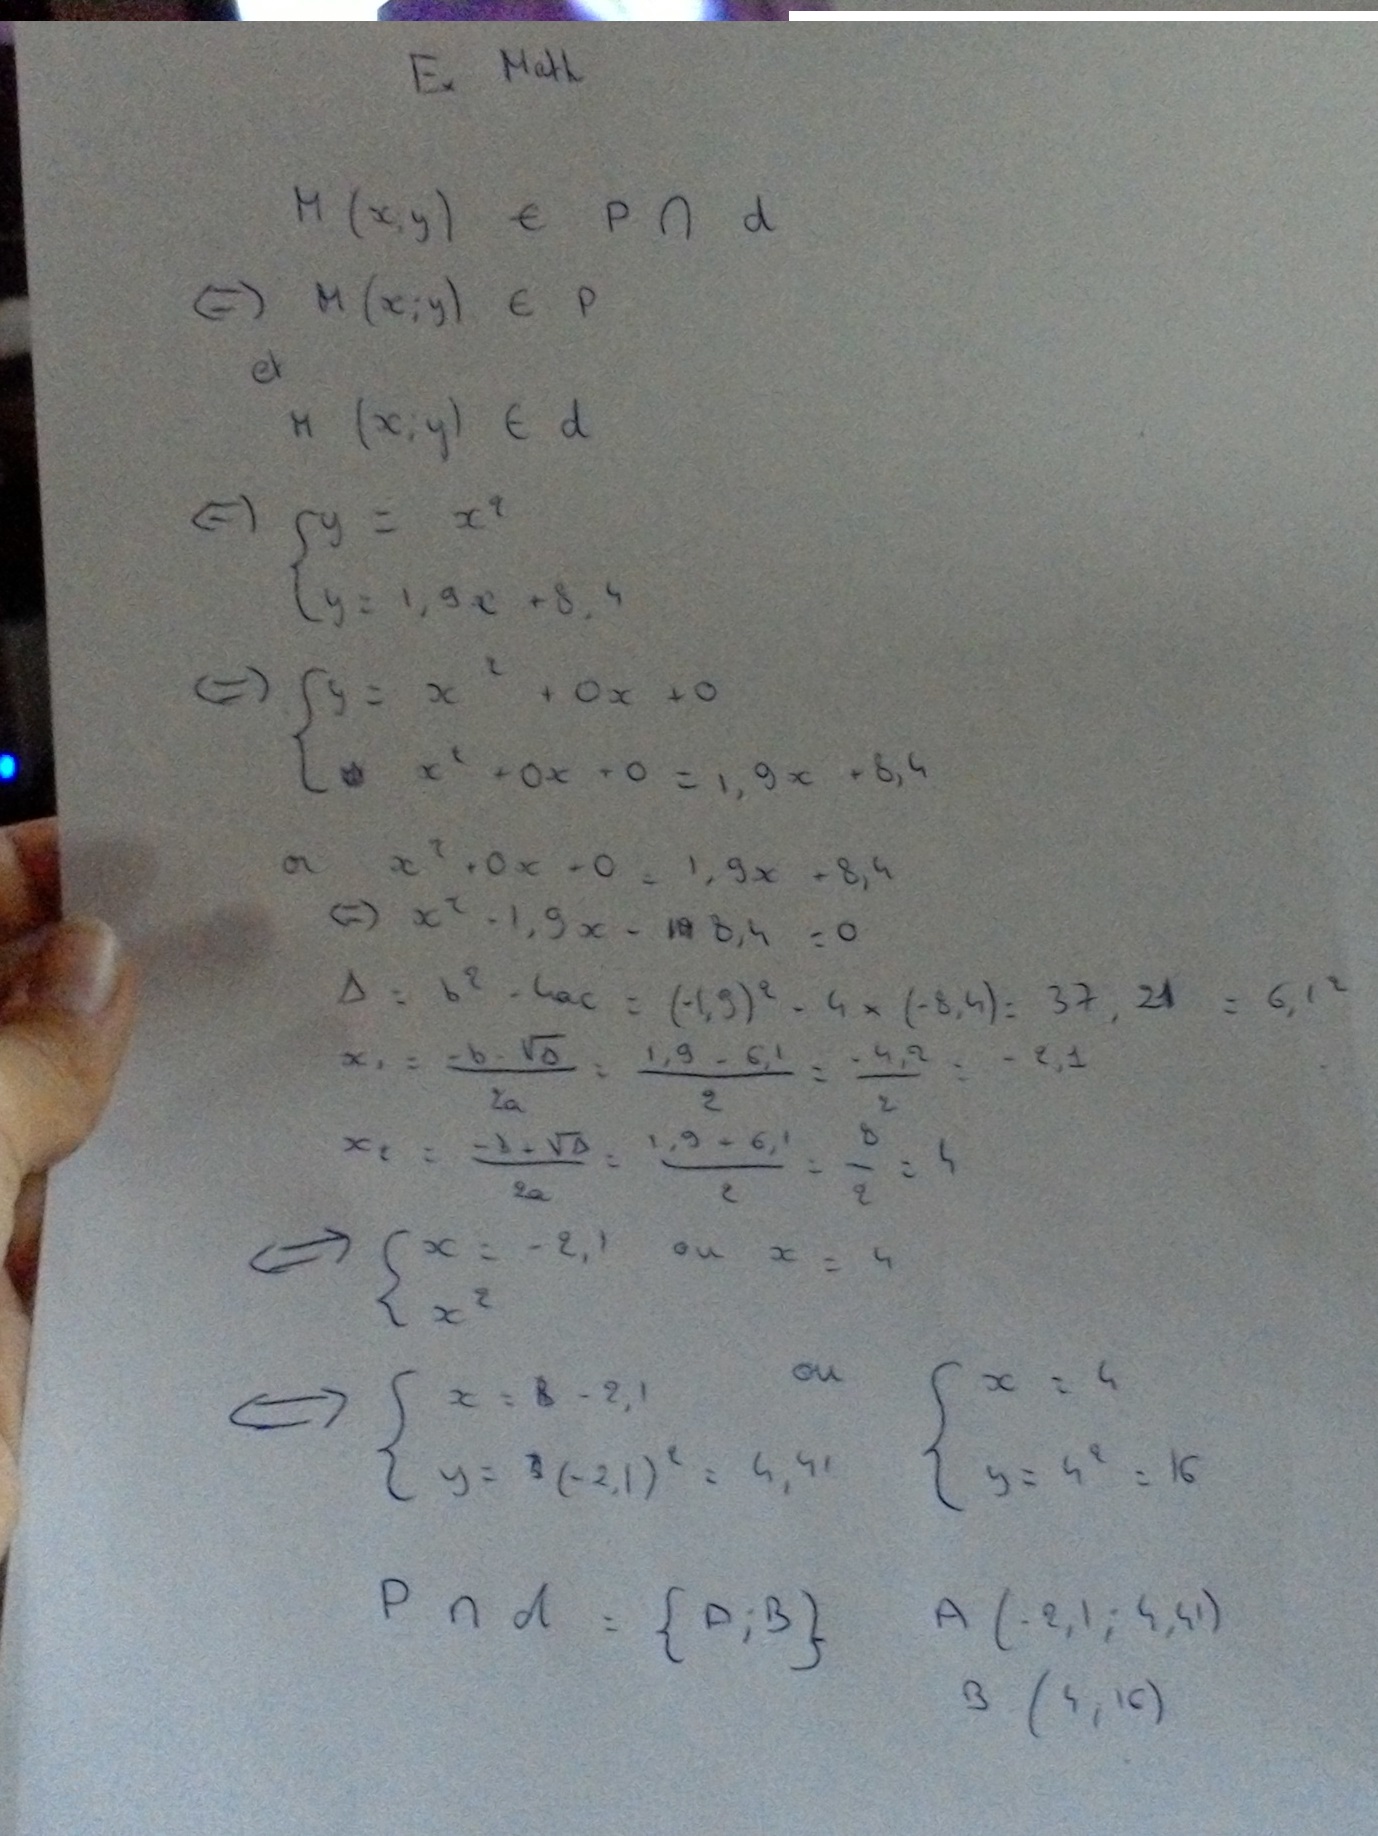 Ex Math
M (x,y) ∈ P ∩ d
⇔ M (x;y) ∈ P
et
M (x;y) ∈ d
⇔ { y = x²
y = 1,9x + 8,4
⇔ { y = x² + 0x + 0
x² + 0x + 0 = 1,9x + 8,4
or x² + 0x + 0 = 1,9x + 8,4
⇔ x² - 1,9x - 8,4 = 0
Δ = b² - 4ac = (-1,9)² - 4 × (-8,4) = 37,21 = 6,1²
x₁ = (-b - √Δ)/2a = (1,9 - 6,1)/2 = -4,2/2 = -2,1
x₂ = (-b + √Δ)/2a = (1,9 + 6,1)/2 = 8/2 = 4
⇔ { x = -2,1 ou x = 4
x²
⇔ { x = -2,1 ou { x = 4
y = (-2,1)² = 4,41 y = 4² = 16
P ∩ d = {A;B} A (-2,1; 4,41)
B (4,16)